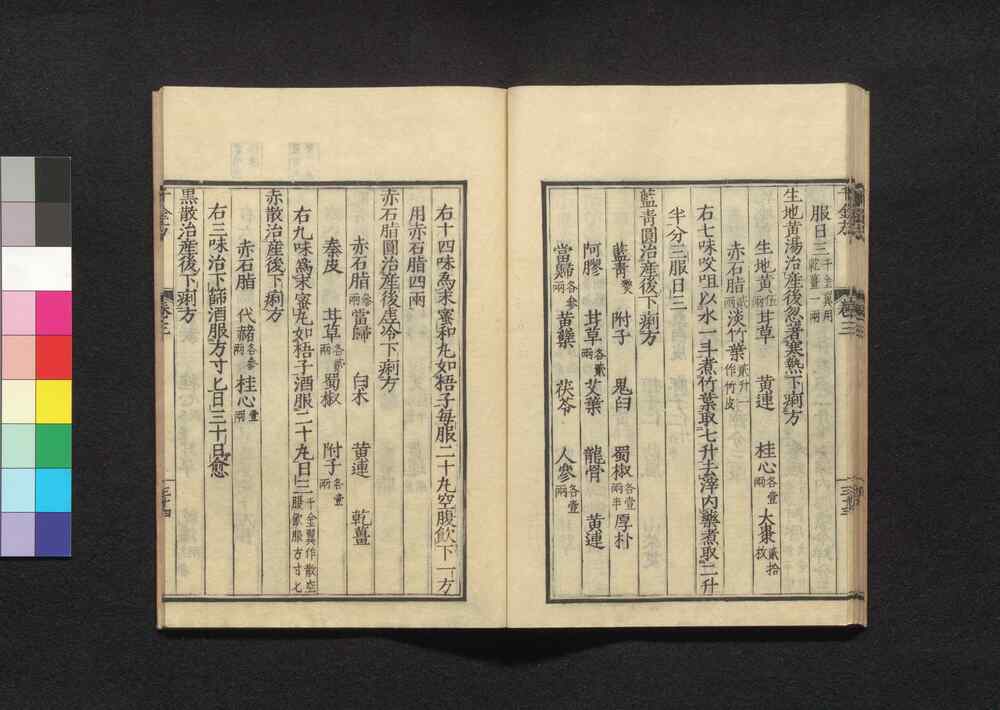 服日三千金翼用乾薑一兩
生地黃湯治產後忽著寒熱下痢方
生地黃伍兩甘草 黃連 桂心各壹兩大棗貳拾枚
赤石脂貳兩淡竹葉貳升一作竹皮
右七味㕮咀以水一斗煮竹葉取七升去滓內藥煮取二升
半分三服日三
藍青圓治產後下痢方
藍青熬 附子 鬼臼 蜀椒各壹兩半厚朴
阿膠 甘草各貳兩艾葉 龍骨 黃連
當歸各參兩黃蘗 茯苓 人參各壹兩
千金方 卷三 三十三
右十四味為末蜜和丸如梧子每服二十丸空腹飲下一方
用赤石脂四兩
赤石脂圓治產後虛冷下痢方
赤石脂參兩當歸 白朮 黃連 乾薑
秦皮 甘草各貳兩蜀椒 附子各壹兩
右九味為末蜜丸如梧子酒服二十丸日三千金翼作散空腹飲服方寸匕
赤散治產後下痢方
赤石脂 代赭各參兩桂心壹兩
右三味治下篩酒服方寸匕日三十日愈
黑散治產後下痢方
千金方 卷三 三十四